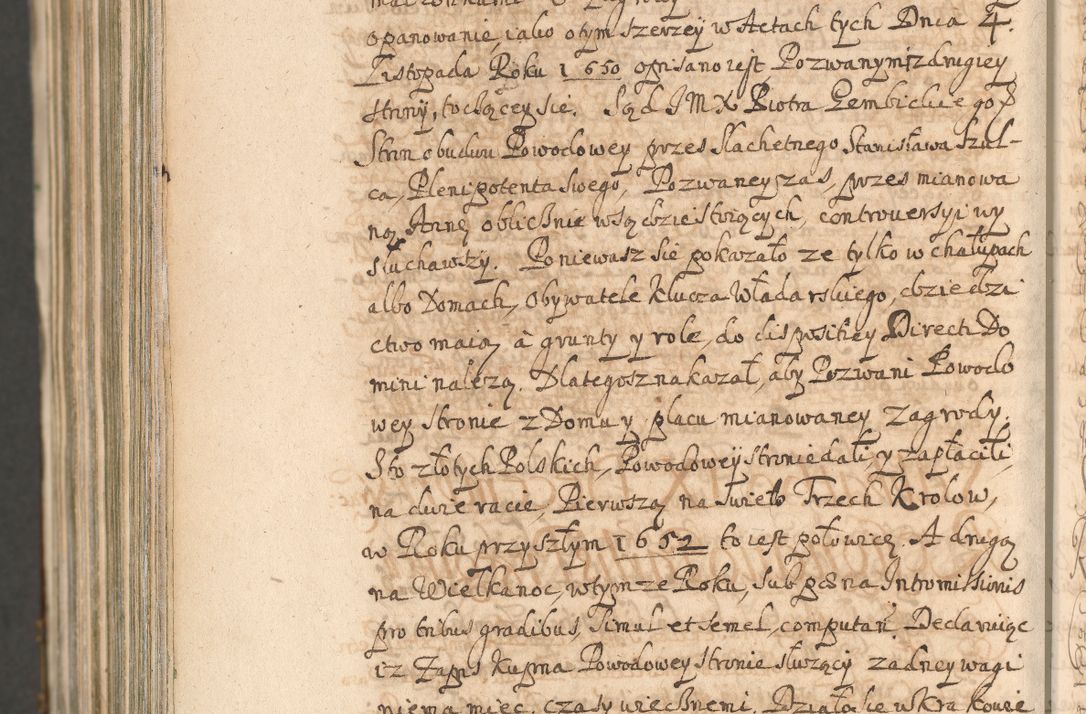 opanowanie, iako o tym szerzey w Actach tych Dnia 4.
Listopada Roku 1650 opisano iest Pozwanymi z drugiey
strony, toczącey sie. Sąd JMX Piotra Gembickiego
Stron obudwu Powodowey przes Slachetnego Stanisława Szul-
ca, Plenipotenta swego, Pozwaney zas, przes mianowa
ną Annę oblicznie w sądzie stoiących, controuersyi wy
słuchawszy. Poniewasz sie pokazało ze tylko w chałupach
albo Domach, Obywatele Klucza Władarskiego, dziedzi
ctwo maią, à grunty y role, do dispositiey Directi Do
mini nalezą. Dlategosz nakazał, aby Pozwani Powodo
wey stronie z Domu y placu mianowaney Zagrody,
Sto złotych Polskich, Powodowey stronie dali, y zapłacili,
na dwie racie, Pierwszą na swięto Trzech Krolow,
w Roku przyszłym 1652 to iest połowicę. A drugą
na Wielkanoc, w tymze Roku, sub pæna Intromissionis
pro tribus gradibus, simul et semel, computań. Declaruiąc
isz Zapis Kupna Powodowey stronie słuzący zadney wagi
niema miec, czasy wiecznemi. Działo sie w Krakowie